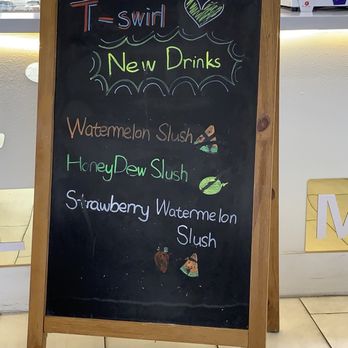 T-swirl
New Drinks
Watermelon Slush
HoneyDew Slush
Strawberry Watermelon
Slush